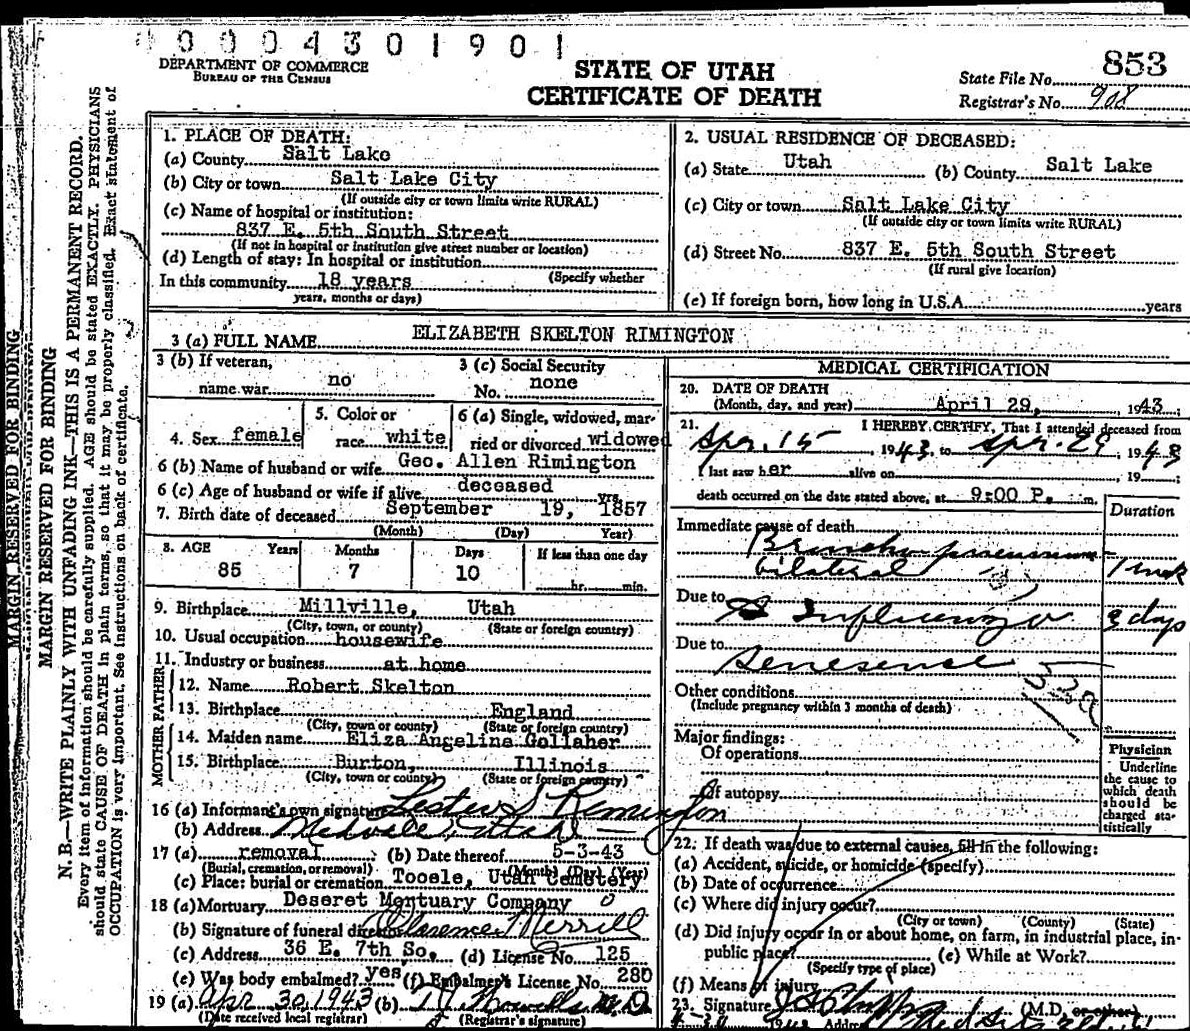 0004301901
DEPARTMENT OF COMMERCE
BUREAU OF THE CENSUS
STATE OF UTAH
CERTIFICATE OF DEATH
State File No. 853
Registrar's No. 908
MARGIN RESERVED FOR BINDING
MARGIN RESERVED FOR BINDING
N. B.—WRITE PLAINLY WITH UNFADING INK—THIS IS A PERMANENT RECORD.
Every item of information should be carefully supplied. AGE should be stated EXACTLY. PHYSICIANS
should state CAUSE OF DEATH in plain terms, so that it may be properly classified. Exact statement of
OCCUPATION is very important. See instructions on back of certificate.
1. PLACE OF DEATH:
(a) County Salt Lake
(b) City or town Salt Lake City
(If outside city or town limits write RURAL)
(c) Name of hospital or institution:
837 E. 5th South Street
(If not in hospital or institution give street number or location)
(d) Length of stay: In hospital or institution
(Specify whether
In this community 18 years
years, months or days)
2. USUAL RESIDENCE OF DECEASED:
(a) State Utah (b) County Salt Lake
(c) City or town Salt Lake City
(If outside city or town limits write RURAL)
(d) Street No. 837 E. 5th South Street
(If rural give location)
(e) If foreign born, how long in U.S.A. years
3 (a) FULL NAME ELIZABETH SKELTON RIMINGTON
3 (b) If veteran,
name war no
3 (c) Social Security
No. none
4. Sex female
5. Color or
race white
6 (a) Single, widowed, mar-
ried or divorced widowed
6 (b) Name of husband or wife Geo. Allen Rimington
6 (c) Age of husband or wife if alive deceased yrs.
7. Birth date of deceased September 19, 1857
(Month) (Day) Year)
8. AGE Years Months Days If less than one day
85 7 10 hr. min.
9. Birthplace Millville, Utah
(City, town, or county) (State or foreign country)
10. Usual occupation housewife
11. Industry or business at home
FATHER
12. Name Robert Skelton
13. Birthplace England
(City, town or county) (State or foreign country)
MOTHER
14. Maiden name Eliza Angeline Gollaher
15. Birthplace Burton, Illinois
(City, town or county) (State or foreign country)
16 (a) Informant's own signature Lester S Remington
(b) Address Midvale, Utah
17 (a) removal (b) Date thereof 5-3-43
(Burial, cremation, or removal) (Month) (Day) (Year)
(c) Place: burial or cremation Tooele, Utah Cemetery
18 (a) Mortuary Deseret Mortuary Company
(b) Signature of funeral director Clarence Merrill
(c) Address 36 E. 7th So. (d) License No. 125
(e) Was body embalmed? yes (f) Embalmer's License No. 280
19 (a) Apr 30, 1943 (b) M.D.
(Date received local registrar) (Registrar's signature)
MEDICAL CERTIFICATION
20. DATE OF DEATH
(Month, day, and year) April 29, 1943;
21. I HEREBY CERTIFY, That I attended deceased from
Apr. 15, 1943, to Apr. 29, 1943
I last saw her alive on 19 ;
death occurred on the date stated above, at 9:00 P. m.
Duration
Immediate cause of death
Broncho pneumonia- 1 week
bilateral
Due to Influenza 3 days
Due to Senesense
Other conditions
(Include pregnancy within 3 months of death)
Major findings:
Of operations
Of autopsy
Physician
Underline
the cause to
which death
should be
charged sta-
tistically
22. If death was due to external causes, fill in the following:
(a) Accident, suicide, or homicide (specify)
(b) Date of occurrence
(c) Where did injury occur?
(City or town) (County) (State)
(d) Did injury occur in or about home, on farm, in industrial place, in-
public place? (e) While at Work?
(Specify type of place)
(f) Means of injury
23. Signature (M.D. or other)
Address